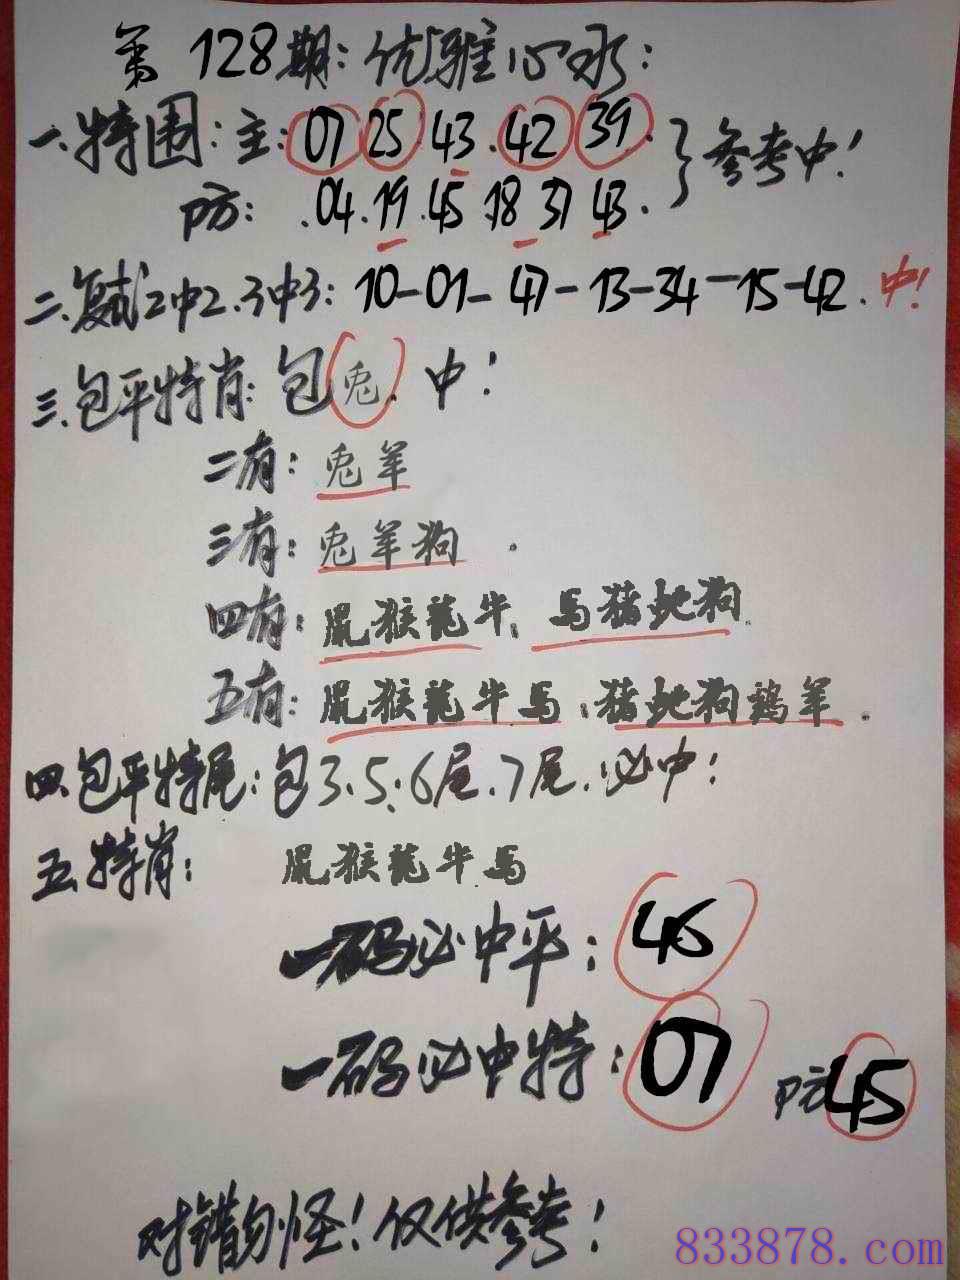 第128期:优雅心水:
一.特围:主:07 25 43.42 39.}参考中!
防:.04.19.45.18 37 43.
二.复式2中2.3中3:10-01-47-13-34-15-42.中!
三.包平特肖:包兔.中!
二有:兔羊
三有:兔羊狗.
四有:鼠猴龍牛.馬猪蛇狗.
五有:鼠猴龍牛馬.猪蛇狗鷄羊.
四.包平特尾:包3.5.6尾.7尾.必中!
五.特肖:鼠猴龍牛馬
一码必中平:46
一码必中特:07 防45
对错勿怪!仅供参考!
833878.com